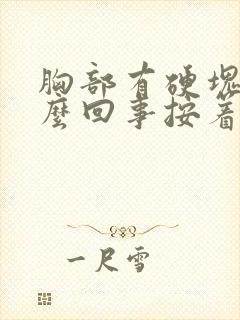 胸部有硬塊
麼回事按着
一尺雪